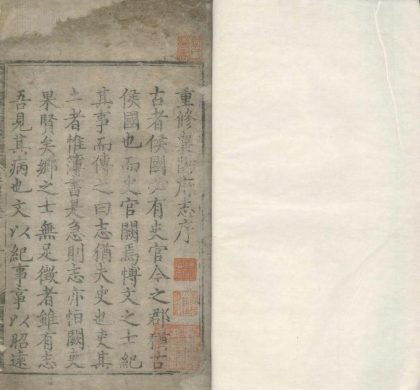 重修襄陽府志序
古者侯國必有史官今之郡猶古
侯國也而史官闕焉博文之士紀
其事而傳之曰志猶夫史也吏其
土者惟簿書是急則志亦怕闕吏
果賢矣鄉之士無足徵者雖有志
吾見其病也文以紀事章以昭遠